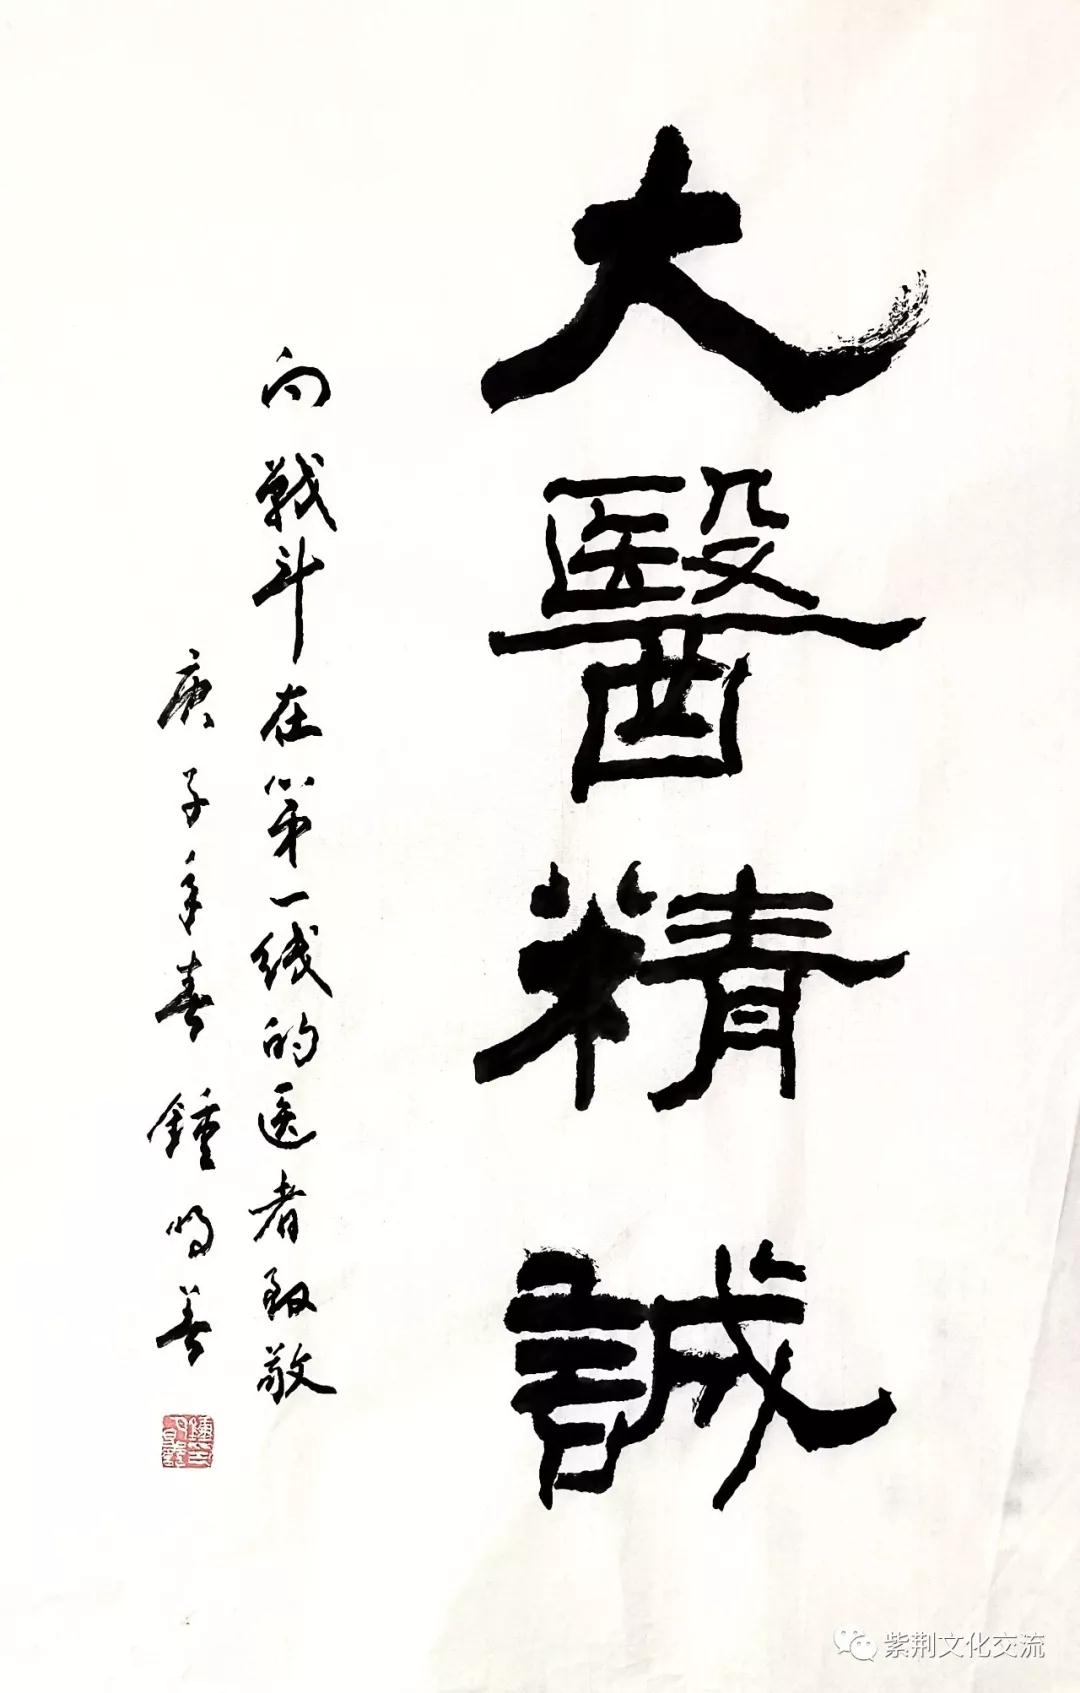 大醫精誠
向戰斗在第一线的医者致敬
庚子年春 鍾鸣善
紫荆文化交流